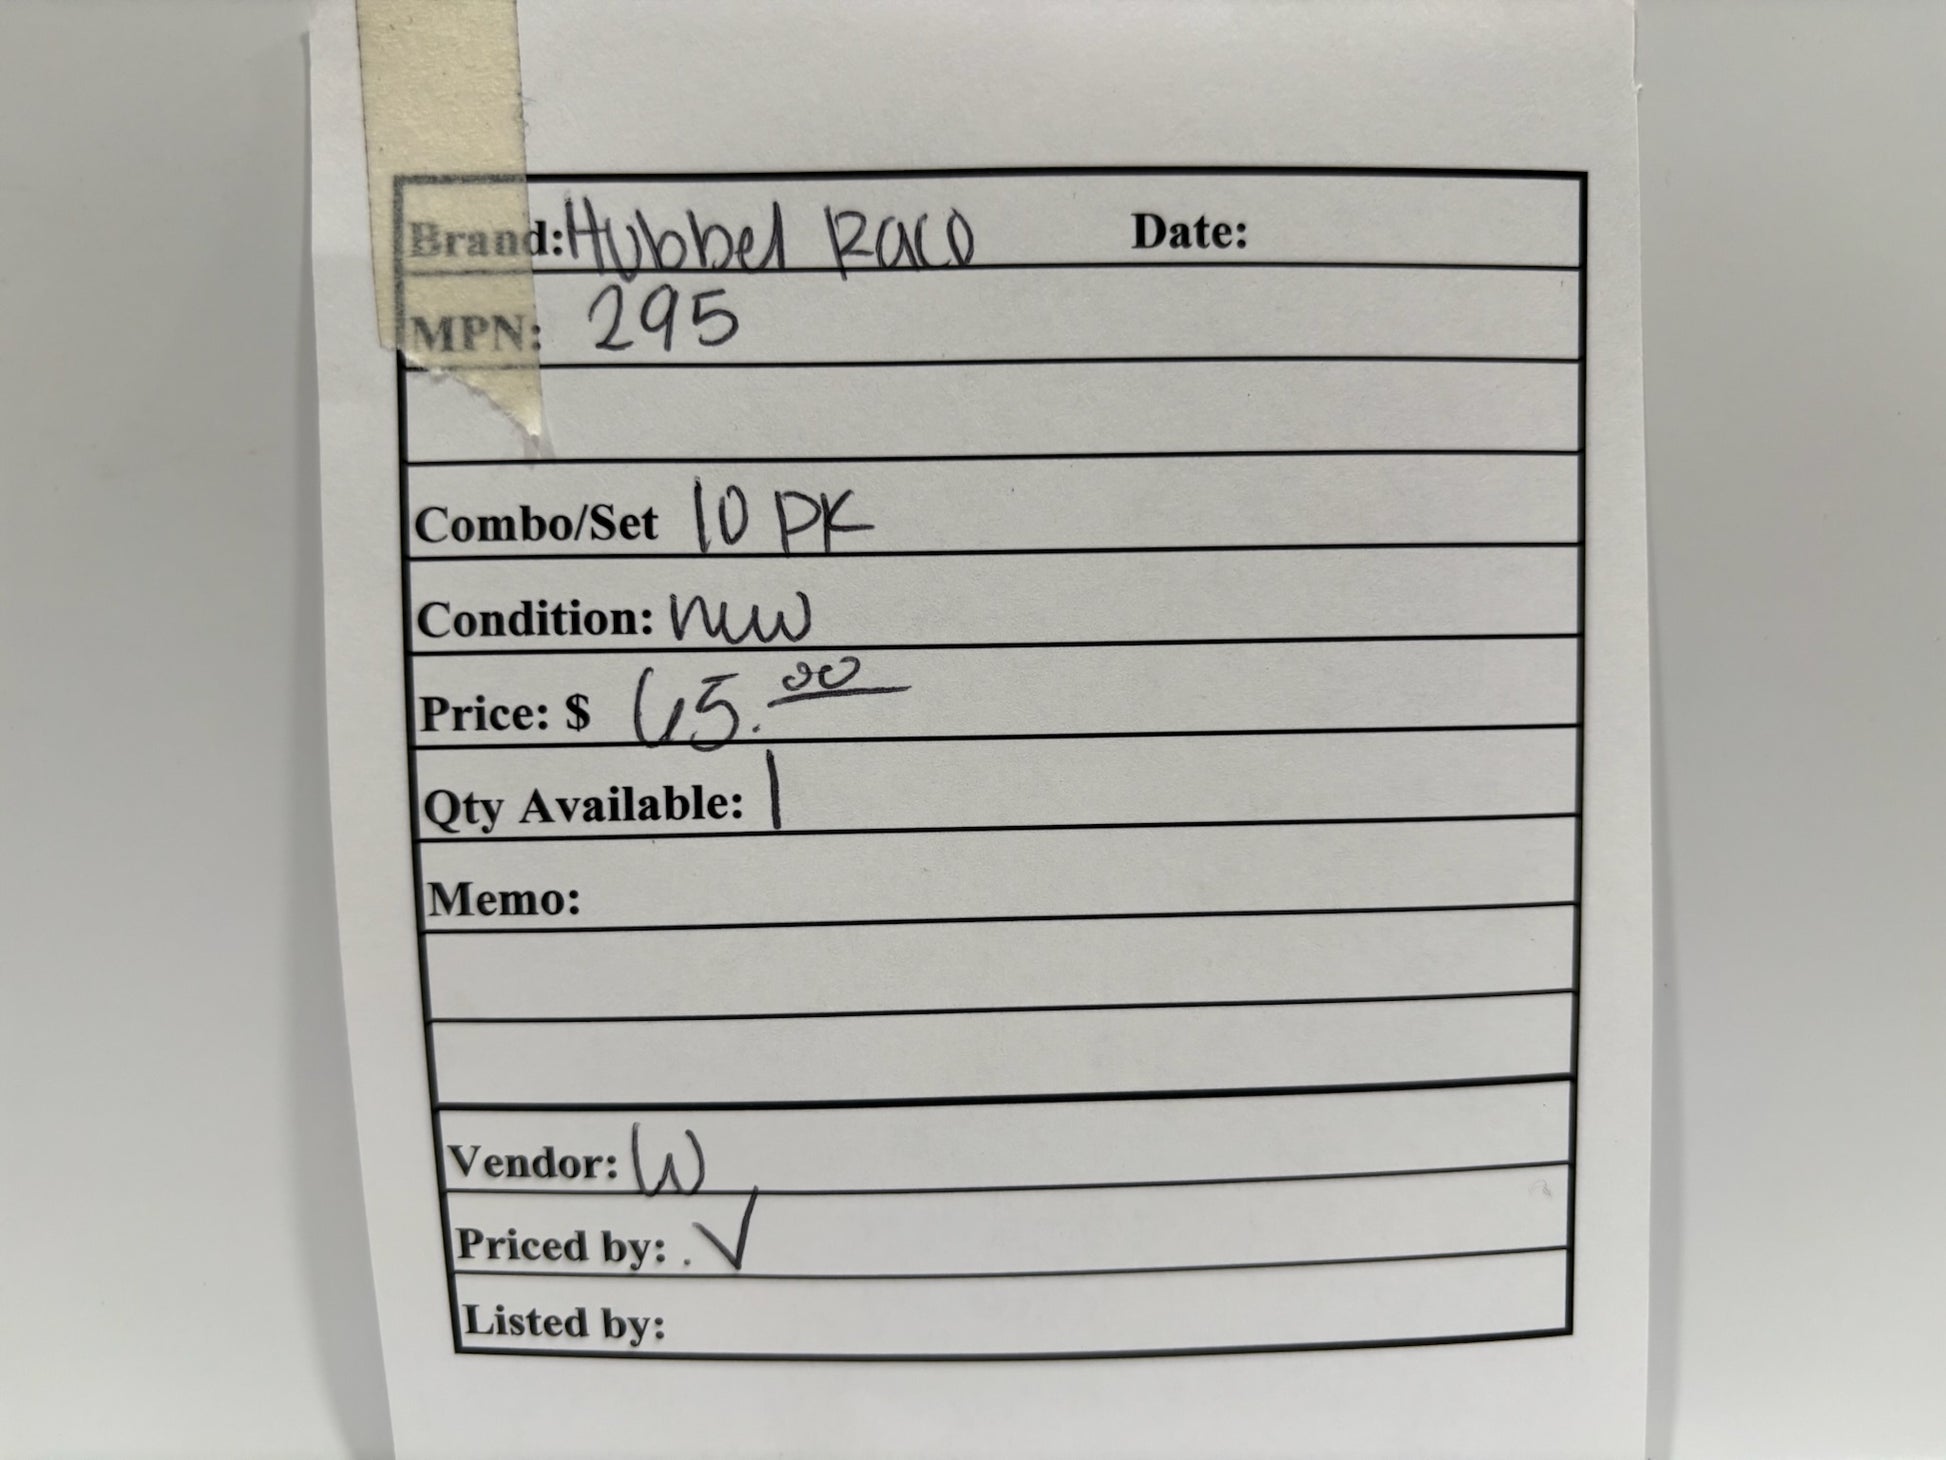 Brand: Hubbel Raco Date:
MPN: 295
Combo/Set 10 PK
Condition: new
Price: $ 65.00
Qty Available: 1
Memo:
Vendor: W
Priced by: . ✓
Listed by: